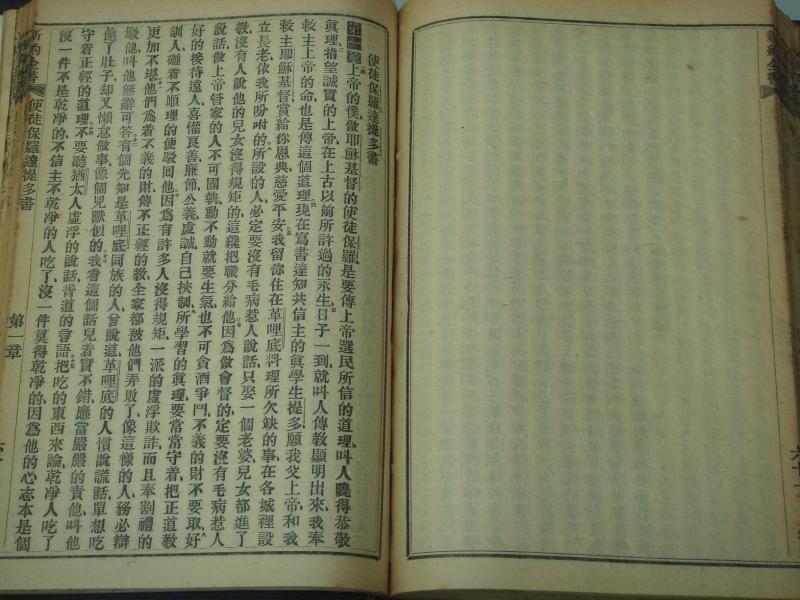 使徒保羅達提多書
第一章上帝的僕、做耶穌基督的使徒保羅、是要傳上帝選民所信的道理、叫人曉得恭敬
眞理、指望誠實的上帝、在上古以前所許過的永生、日子一到、就叫人傳教顯明出來、我奉
救主上帝的命、也是傳這個道理、現在寫書達知共信主的眞學生提多、願我父上帝、和我
救主耶穌基督、賞給你恩典、慈愛、平安、我留你住在革哩底、料理所欠缺的事、在各城裡設
立長老、依我所吩咐的、所設的人、必定要沒有毛病惹人說話、只娶一個老婆、兒女都進了
教、沒有人說他的兒女沒得規矩的、這纔把職分給他、因爲做會督的、定要沒有毛病惹人
說話、做上帝管家的人、不可固執、動不動就要生氣、也不可貪酒爭鬥、不義的財不要取、好
好的接待遠人、喜懽良善、廉節、公義、虔誠、自己挾制、所學習的眞理、要常常守着、把正道教
訓人、碰着不順理的、便駁回他、因爲有許多人、沒得規矩、一派的虛浮欺詐、而且奉割禮的
更加不堪、他們爲着不義的財、傳不正經的教、全家都被他們弄敗了、像這樣的人、務必辯
駁他、叫他無辭可答、有個先知是革哩底同族的人、曾說道、革哩底的人、慣說謊話、單想吃
他了肚子、却又懶怠做事、像個兇獸似的、我看這個話兒着實不錯、應當嚴嚴的責他、叫他
守着正經的道理、不要聽猶太人虛浮的說話、背道的言語、把吃的東西來論、乾淨人吃了、
沒一件不是乾淨的、不信主不乾淨的人吃了、沒一件算得乾淨的、因爲他的心志本是個
新約全書
使徒保羅達提多書
第一章